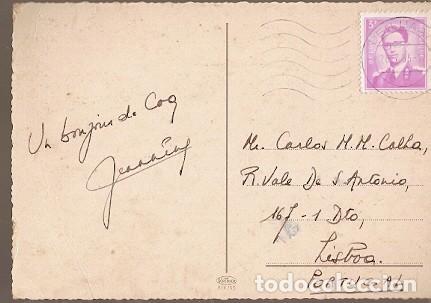 Un bonjour de Coq
Jeannine
Mr. Carlos M. M. Calha,
R. Vale De S. Antonio,
167-1 Dto,
Lisboa.
Portugal.
3F
todocoleccion